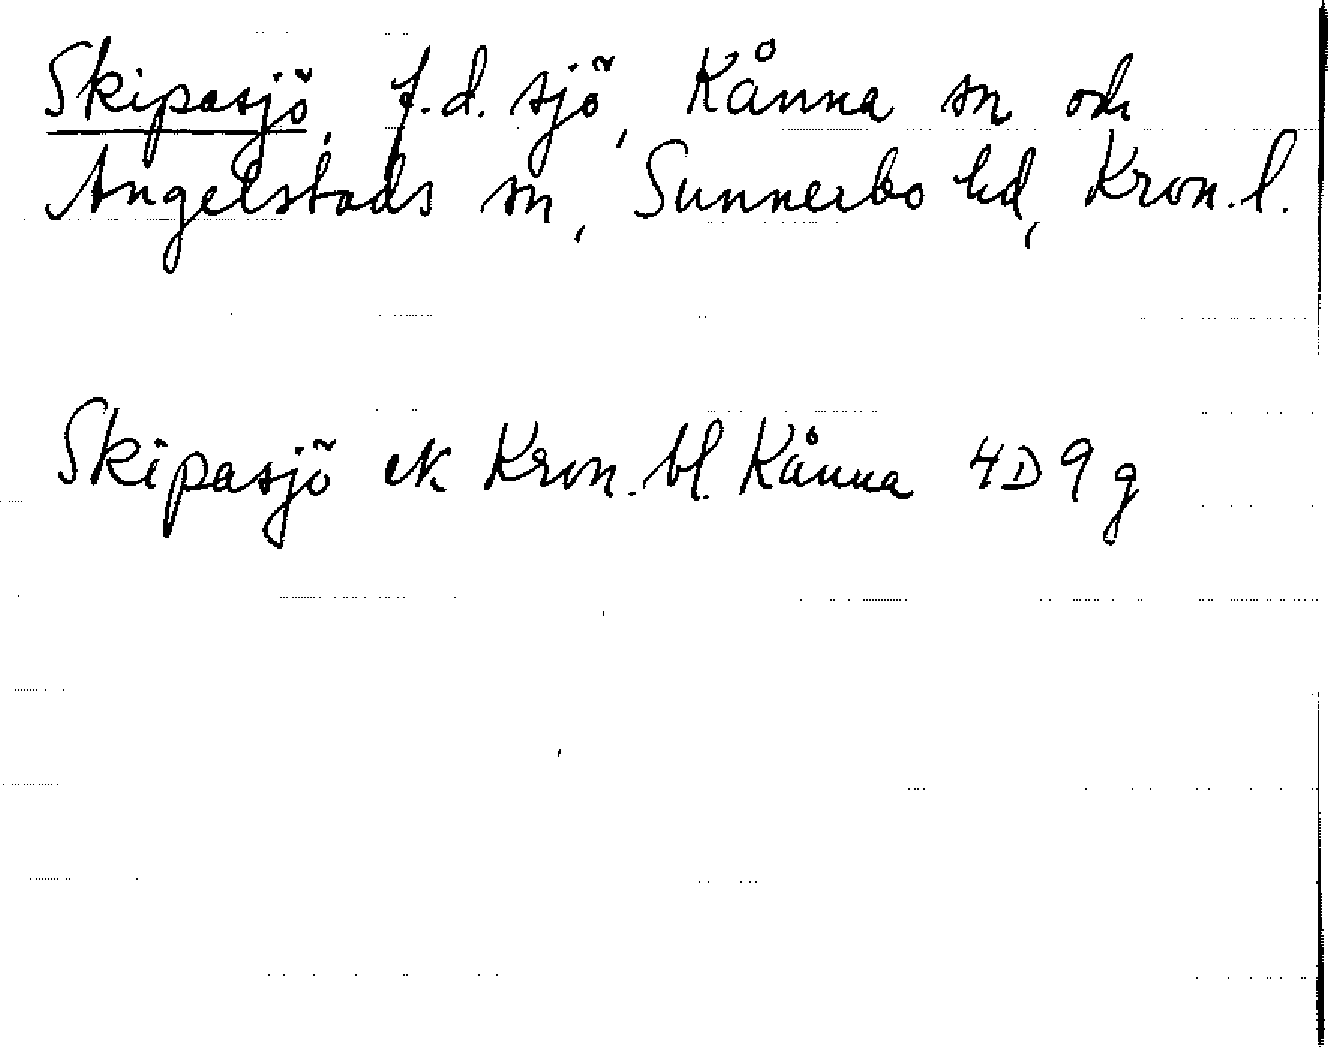 Skipasjö, f.d. sjö, Kånna sn och
Angelstads sn, Sunnerbo hd, Kron. l.
Skipasjö ek Kron. bl. Kånna 4D 9g